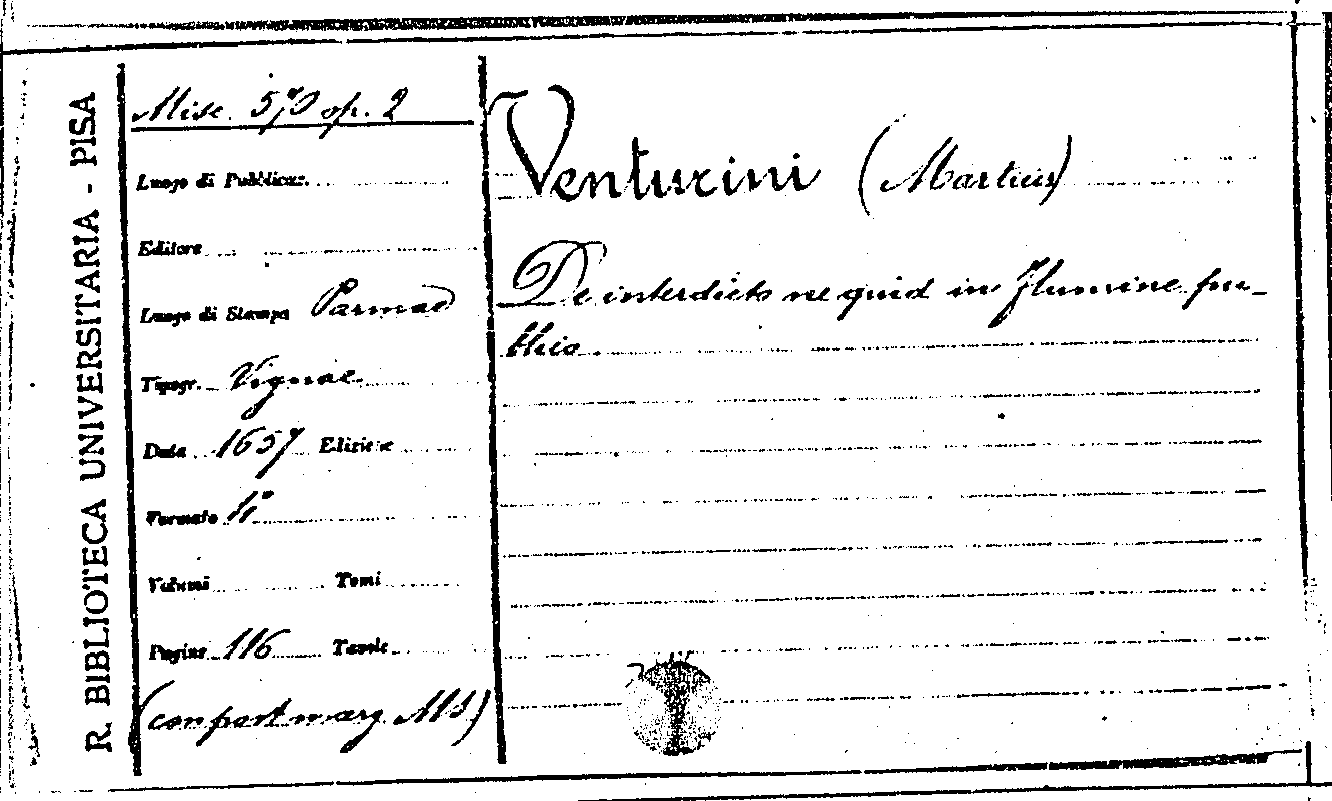 R. BIBLIOTECA UNIVERSITARIA - PISA
Misc. 570 op. 2
Luogo di Pubblicaz.
Editore
Luogo di Stampa Parmae
Tipogr. Vignae
Data 1657 Edizione
Formato 4°
Volumi Tomi
Pagine 116 Tavole
(con post marg MS)
Venturini (Martius)
De interdicto ne quid in flumine pu-
blico